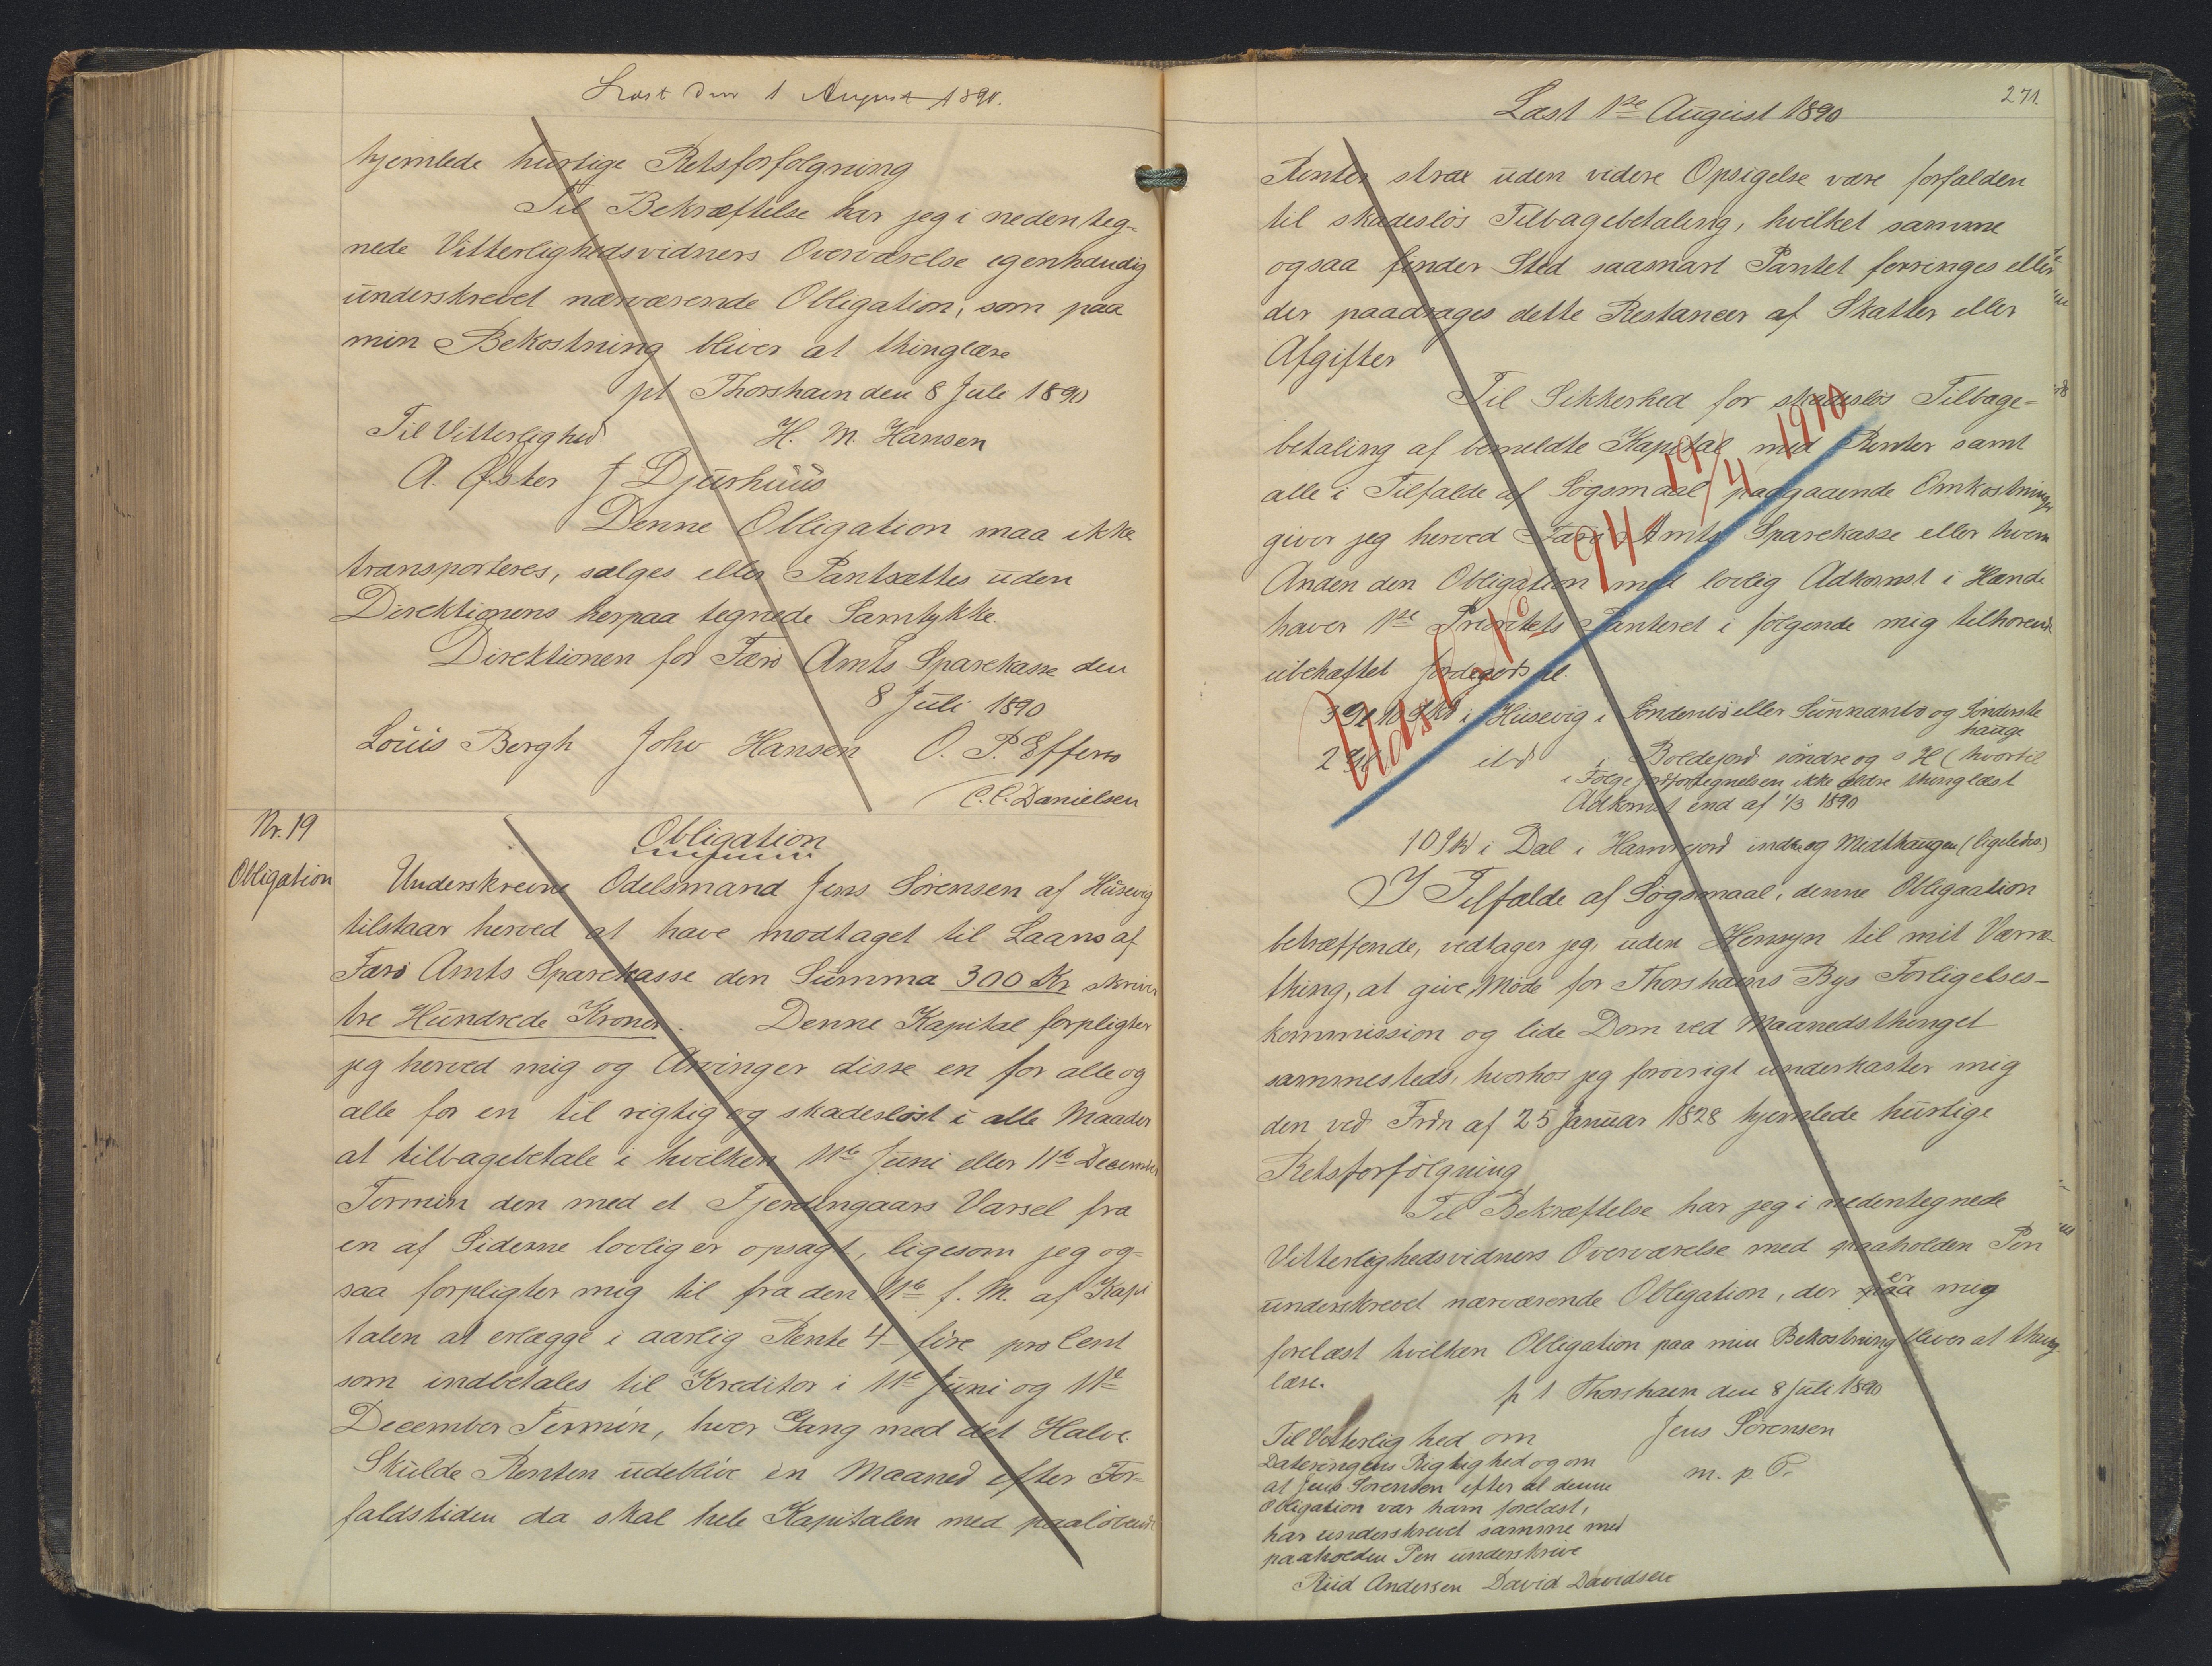 Læst den 1 August 1890.
hjemlede hurtige Retsforfølgning
Til Bekræftelse har jeg i nedenteg-
nede Vitterlighedsvidners Overværelse egenhændig
underskrevet nærværende Obligation, som paa
min Bekostning bliver at thinglæse
pt Thorshavn den 8 Juli 1890
Til Vitterlighed H. M. Hansen
A. Øster J Djurhuus
Denne Obligation maa ikke
transporteres, sælges eller Pantsættes uden
Direktionens herpaa tegnede Samtykke.
Direktionen for Færø Amts Sparekasse den
8 Juli 1890
Louis Bergh Johs Hansen O. P. Effersø
C. C. Danielsen
Nr. 19
Obligation
Obligation
Underskrevne Odelsmand Jens Sørensen af Husevig
tilstaar herved at have modtaget til Laans af
Færø Amts Sparekasse den Summa 300 Kr skriver
tre Hundrede Kroner. Denne Kapital forpligter
jeg herved mig og Arvinger disse en for alle og
alle for en til rigtig og skadesløst i alle Maader
at tilbagebetale i hvilken 11te Juni eller 11te December
Termin den med et Fjerdingaars Varsel fra
en af Siderne lovlig er opsagt, ligesom jeg og-
saa forpligter mig til fra den 11te f. M. af Kapi
talen at erlægge i aarlig Rente 4 fire pro Cent
som indbetales til Kreditor i 11te Juni og 11te
December Termin, hver Gang med det Halve.
Skulde Renten udeblive en Maaned efter For-
faldstiden da skal hele Kapitalen med paaløbende
271.
Læst 1ste August 1890
Renter strax uden videre Opsigelse være forfalden
til skadesløs Tilbagebetaling, hvilket samme
ogsaa finder Sted saasnart Pantet forringes eller
der paadrages dette Restancer af Skatter eller
Afgifter
Til Sikkerhed for skadesløs Tilbage-
betaling af bemeldte Kapital med Renter samt
alle i Tilfælde af Søgsmaal paagaaende Omkostninger
giver jeg herved Færø Amts Sparekasse eller hvem
Anden den Obligation med lovlig Adkomst i Hænde
haver 1ste Prioritets Panteret i følgende mig tilhørende
ubehæftet Jordegods al.
Udsl. 19/4 1910
3 Gl 10 Skd i Husevig i Søndenbø eller Sunnanbø og Sønderste
hauge
2 Gl ibd i Boldejord søndre og s H (hvortil
i Følge Jordfortegnelsen ikke ældre thinglæst
Adkomst end af 1/3 1890
10 Skd i Dal i Hamrejord indre og Midthaugen (ligeledes)
I Tilfælde af Søgsmaal, denne Obligaation
betræffende, vedtager jeg, uden Hensyn til mit Værne-
thing, at give Møde for Thorshavns Bys Forligelses-
kommission og lide Dom ved Maanedsthinget
sammesteds, hvorhos jeg forøvrigt underkaster mig
den ved Frdn af 25 Januar 1828 hjemlede hurtige
Retsforfølgning
Til Bekræftelse har jeg i nedentegnede
Vitterlighedsvidners Overværelse med paaholden Pen
underskrevet nærværende Obligation, der er mig
forelæst hvilken Obligation paa min Bekostning bliver at thing
læse.
p t Thorshavn den 8 Juli 1890
Til Vitterlighed om Jens Sørensen
Dateringens Rigtighed og om m. p. P.
at Jens Sørensen efter at denne
Obligation var ham forelæst,
har underskrevet samme med
paaholden Pen underskrive
Riid Andersen David Davidsen